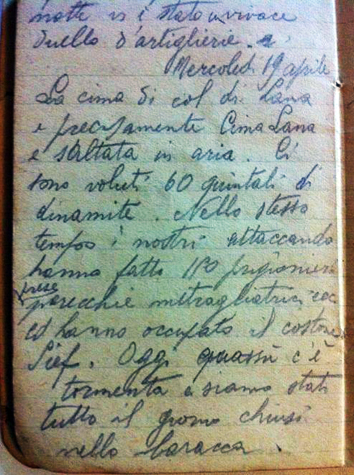 notte vi è stato un vivace
duello d'artiglierie.
Mercoledì 19 aprile
La cima di col di Lana
e precisamente Cima Lana
è saltata in aria. Ci
sono voluti 60 quintali di
dinamite. Nello stesso
tempo i nostri attaccando
hanno fatto prigionieri
prese
parecchie mitragliatrici, ecc
ed hanno occupato il costone
Sief. Oggi quassù c'è
tormenta e siamo stati
tutto il giorno chiusi
nella baracca.